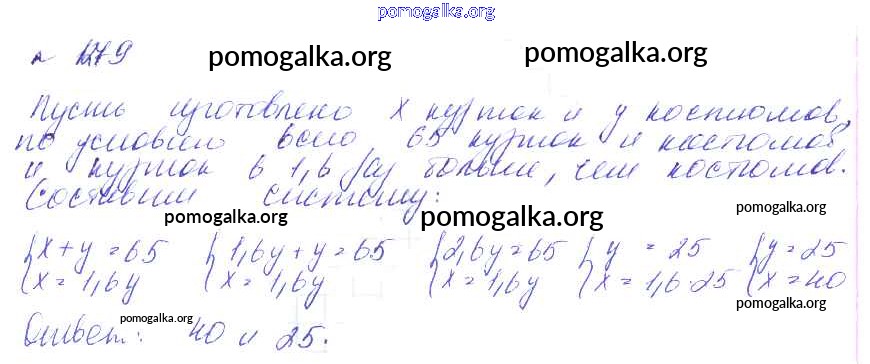 pomogalka.org
pomogalka.org pomogalka.org
Пусть изготовлено x курток и y костюмов,
по условию всего 65 курток и костюмов
и курток в 1,6 раз больше, чем костюмов.
Составим систему:
pomogalka.org pomogalka.org pomogalka.org
{x+y=65 {1,6y+y=65 {2,6y=65 {y = 25 {y=25
{x=1,6y {x=1,6y {x=1,6y {x=1,6·25 {x=40
pomogalka.org pomogalka.org
Ответ: 40 и 25.
pomogalka.org